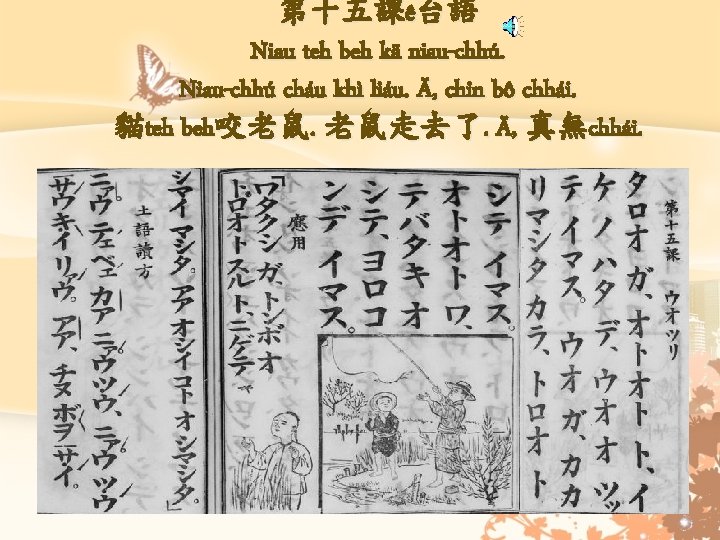 第十五課ê台語
Niau teh beh kā niau-chhú.
Niau-chhú cháu khì liáu. Ā, chin bô chhái.
貓teh beh咬老鼠. 老鼠走去了. Ā, 真無chhái.
第十五課 ウオツリ
タロオ ガ、オトオト ト、イ
ケ ノ ハタ デ、ウオ オ ツッ
テ イマス。ウオ ガ、カカ
リマシタ カラ、トロオ ト
シテ イマス。
オトオト ワ、
テバタキ オ
シテ、ヨロコ
ンデ イマス。
應用
「ワタクシ ガ、トンボ オ
トロオ ト スル ト、ニゲテ
シマイ マシタ。アア オシイ コト オ シマシタ。」
土語讀方
ニァウ テエ ベエ カア ニァウ ツウ、ニァウ ツウ
サウ キイ リァウ。アア、チヌ ボヲ サイ。